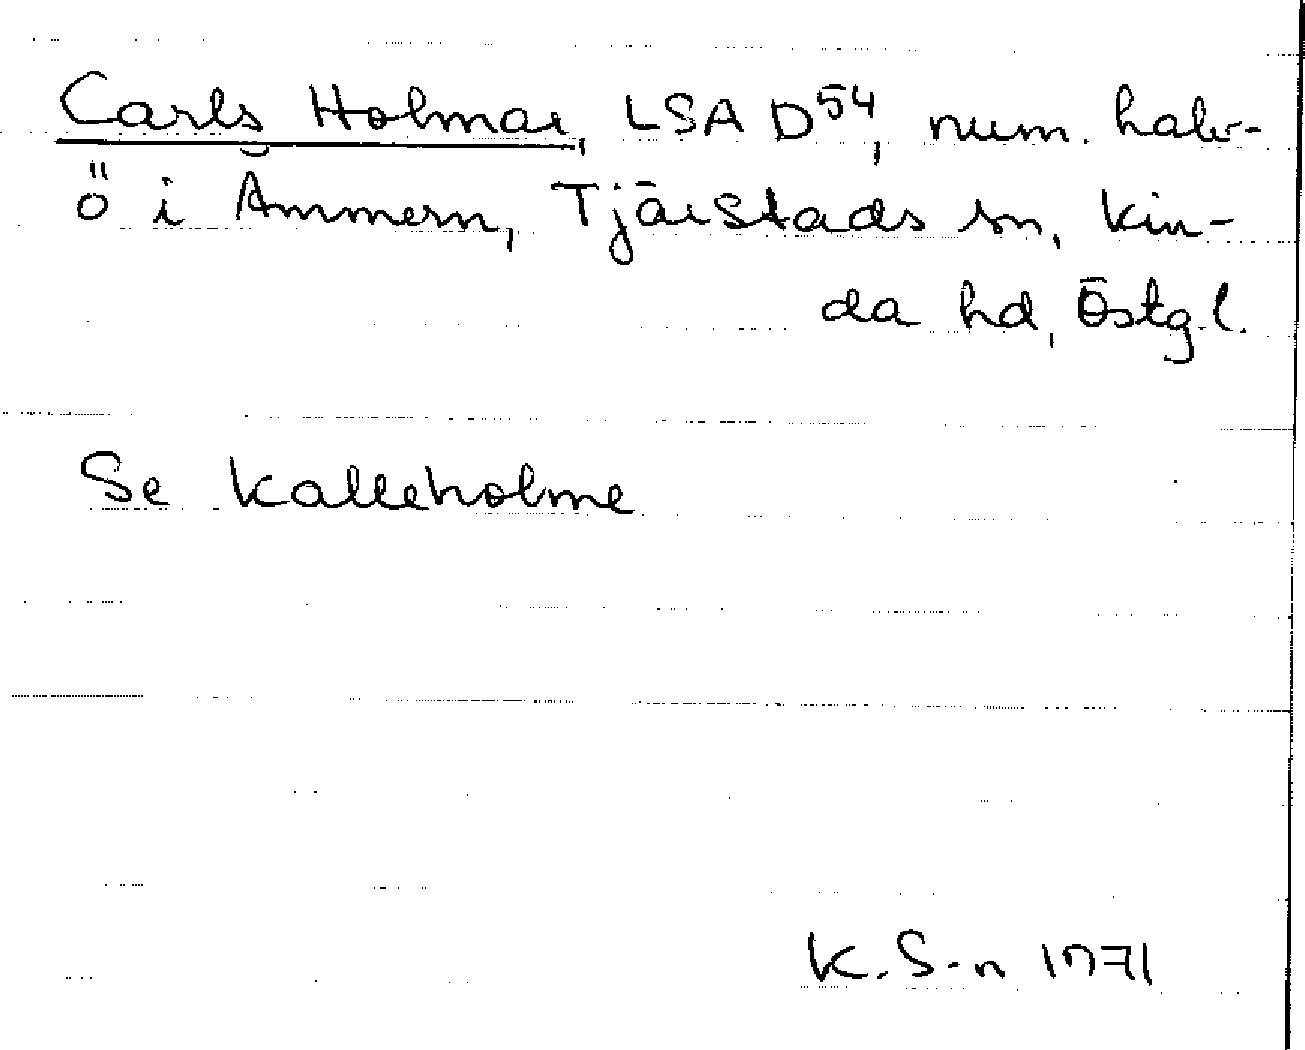 Carls Holmar, LSA D54, num. halv-
ö i Ämmern, Tjärstads sn, Kin-
da hd, Östg.l.
Se Kalleholme
K. S-n 1971